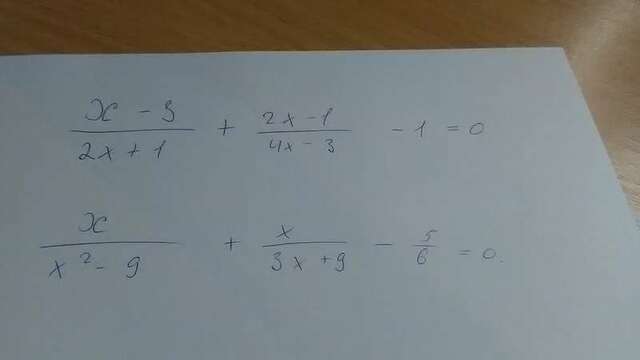 x - 3 / 2x + 1 + 2x - 1 / 4x - 3 - 1 = 0
x / x² - 9 + x / 3x + 9 - 5 / 6 = 0.